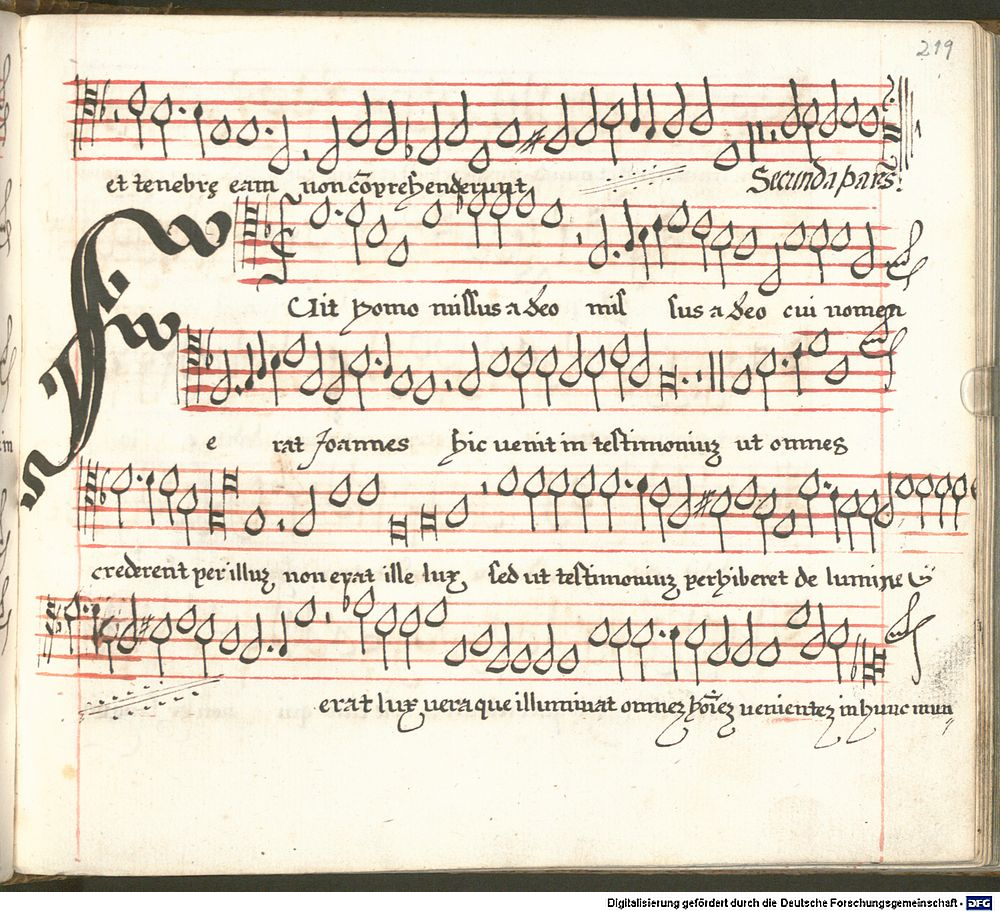 219
et tenebrę eam non cõprehenderunt Secunda pars.
FUit homo missus a deo mis sus a deo cui nomen
e rat Joannes hic uenit in testimoniuʒ ut omnes
crederent per illuʒ non erat ille lux sed ut testimoniuʒ perhiberet de lumine
erat lux uera que illuminat omneʒ hoı̃eʒ uenienteʒ in hunc mun
Digitalisierung gefördert durch die Deutsche Forschungsgemeinschaft - DFG